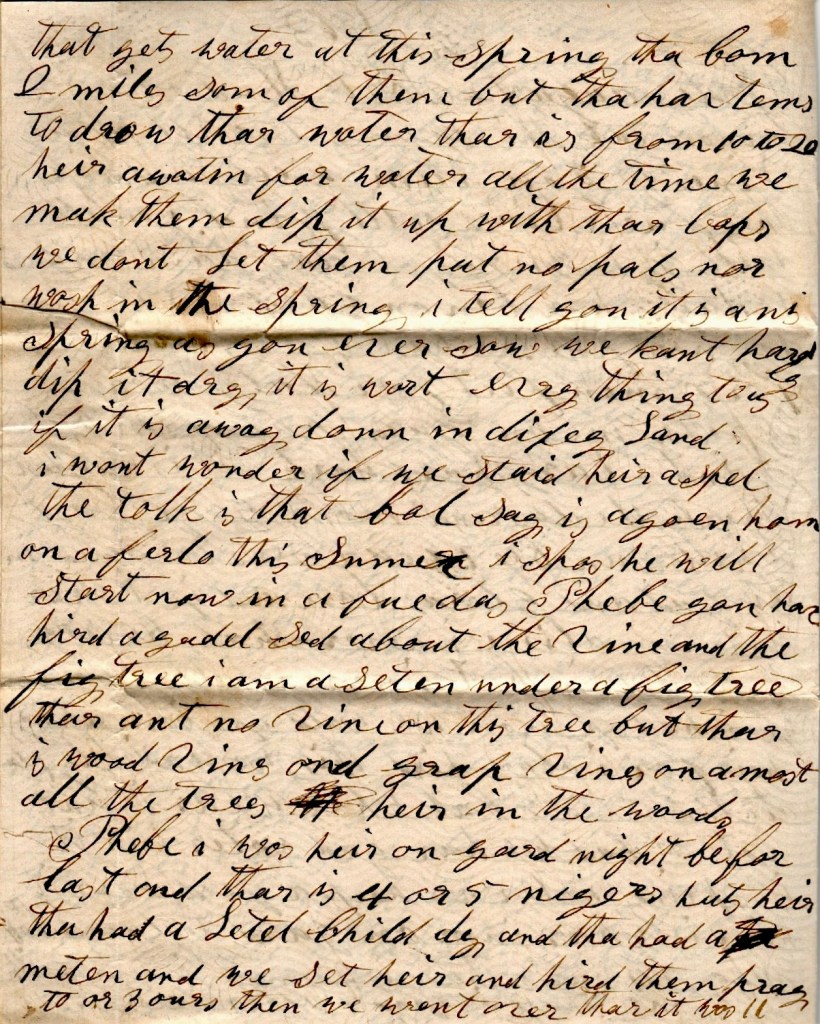 that gets water at this spring tha bom
2 miles som of them but tha har tems
to drow thar water thar is from 10 to 20
heir awatin for water all the time we
mak them dip it up with thar Cops
we dont Let them put no pals nor
wosh in the spring i tell you it is a nis
spring as you ever sow we kant hardly
dip it dry it is wort every thing to us
if it is away donn in dixey Land
i wont wonder if we staid heir a spel
the tolk is that Col Say is agoen hom
on a ferlo this Sumer i spos he will
start now in a fue das Phebe you hav
hird a gadel sed about the vine and the
fig tree i am a seten under a fig tree
thar ant no vine on this tree but thar
is wood vins and grap vines on amost
all the trees heir in the woods
Phebe i was heir on gard night befor
last and thar is 4 or 5 nigers huts heir
tha had a Letel Child dy and tha had a
meten and we set heir and hird them pray
to or 3 ours then we went over thar it was 11